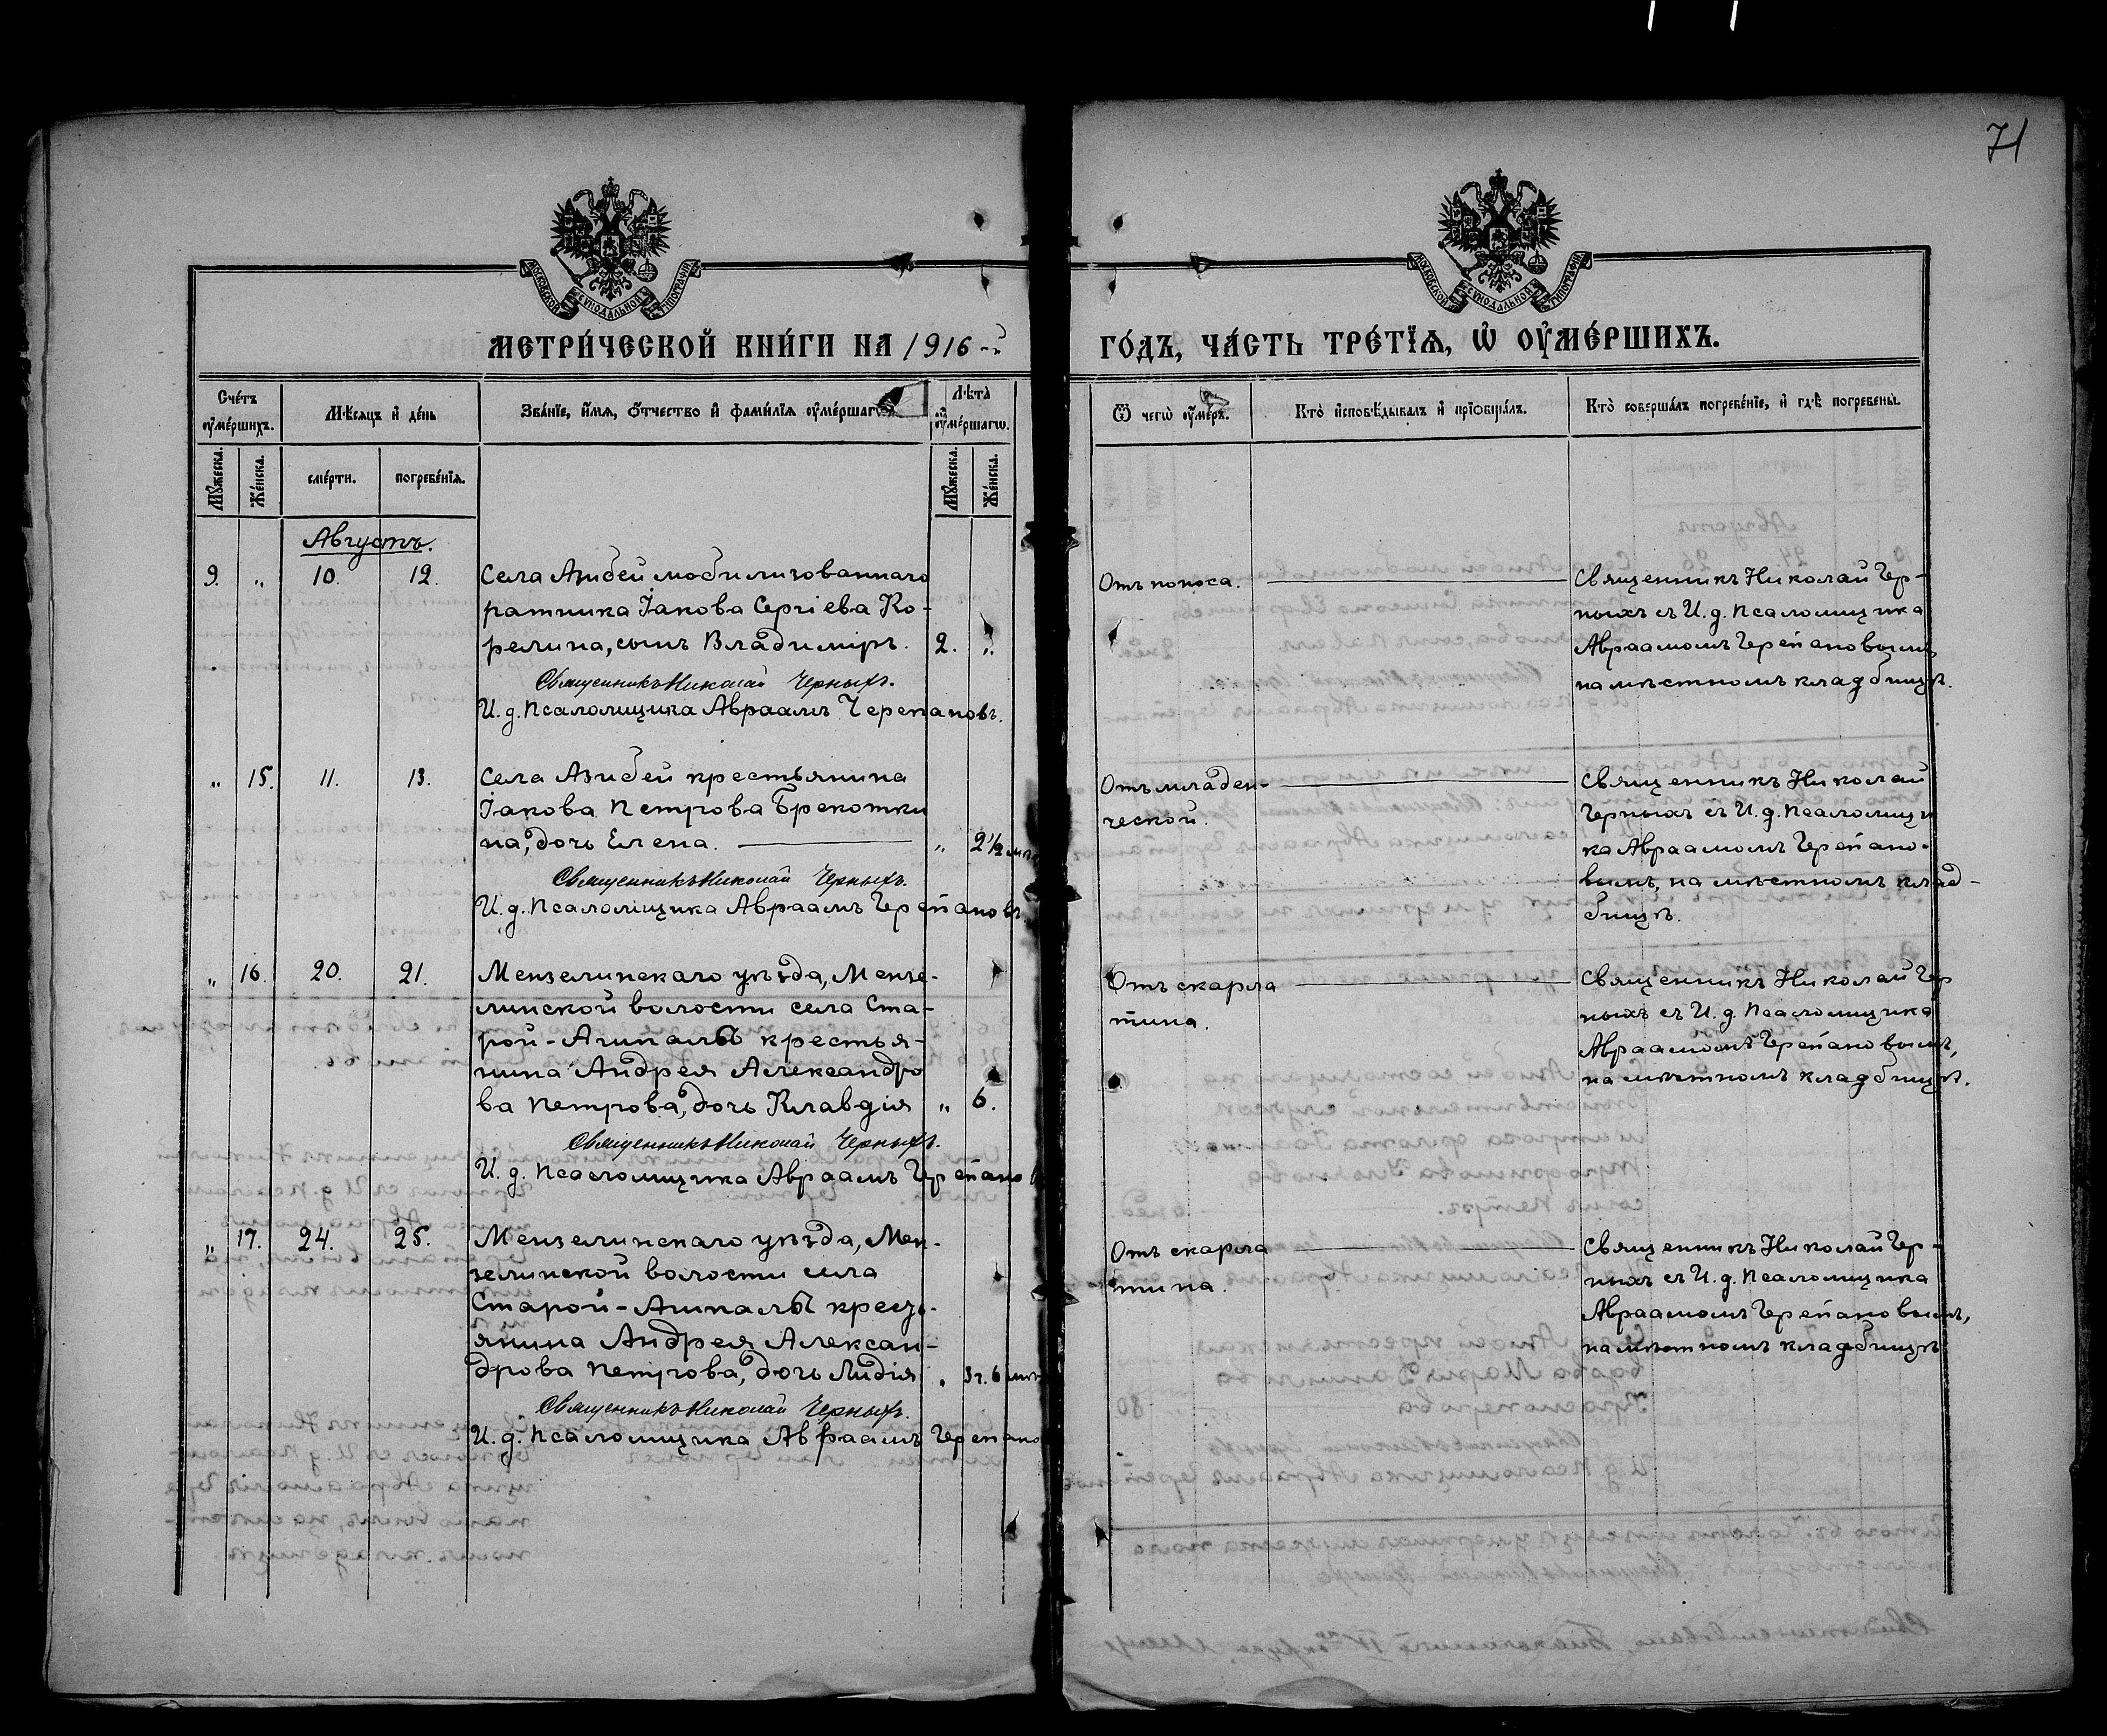 71
МОСКОВСКОЙ СѴНОДАЛЬНОЙ ТИПОГРАФІИ
МОСКОВСКОЙ СѴНОДАЛЬНОЙ ТИПОГРАФІИ
МЕТРИ́ЧЕСКОЙ КНИ́ГИ НА 1916-й
ГО́ДЪ, ЧА́СТЬ ТРЕ́ТЇѦ, Ѡ҆ ОУ҆МЕ́РШИХЪ.
Сче́тъ оу҆ме́ршихъ.
Мѣ́сѧцъ и҆ де́нь
Зва́нїе, и҆́мѧ, ѻ҆́тчество и҆ фами́лїѧ оу҆ме́ршагѡ.
Лѣ́та оу҆ме́ршагѡ.
Ѿ чегѡ̀ оу҆́меръ.
Кто̀ и҆сповѣ́дывалъ и҆ прїѡбща́лъ.
Кто̀ соверша́лъ погребе́нїе, и҆ гдѣ̀ погребены̀.
Мꙋ́жеска.
Же́нска.
сме́рти.
погребе́нїѧ.
Мꙋ́жеска.
Же́нска.
Августъ.
9. „ 10. 12. Села Азибей мобилизованнаго
ратника Іакова Сергіева Ко-
релина, сынъ Владиміръ. 2. „
Священникъ Николай Черныхъ.
И. д. Псаломщика Авраамъ Черепановъ.
Отъ поноса.
Священникъ Николай Чер-
ныхъ съ И. д. Псаломщика
Авраамомъ Черепановымъ,
на мѣстномъ кладбищѣ.
„ 15. 11. 13. Села Азибей крестьянина
Іакова Петрова Брекотки
на, дочь Елена. „ 2½ мѣс
Священникъ Николай Черныхъ.
И. д. Псаломщика Авраамъ Черепановъ.
Отъ младен-
ческой.
Священникъ Николай
Черныхъ съ И. д. Псаломщи
ка Авраамомъ Черепано-
вымъ, на мѣстномъ клад-
бищѣ.
„ 16. 20. 21. Мензелинскаго уѣзда, Мензе-
линской волости села Ста-
рой-Ашпалы крестья-
нина Андрея Александро
ва Петрова, дочь Клавдія „ 6.
Священникъ Николай Черныхъ.
И. д. Псаломщика Авраамъ Черепанов
Отъ скарла
тина.
Священникъ Николай Чер
ныхъ съ И. д. Псаломщика
Авраамомъ Черепановымъ,
на мѣстномъ кладбищѣ.
„ 17. 24. 25. Мензелинскаго уѣзда, Мен-
зелинской волости села
Старой-Ашпалы кресть-
янина Андрея Алексан-
дрова Петрова, дочь Лидія „ 3 г. 6 мѣс
Священникъ Николай Черныхъ.
И. д. Псаломщика Авраамъ Черепано
Отъ скарла
тина.
Священникъ Николай Чер-
ныхъ съ И. д. Псаломщика
Авраамомъ Черепановымъ,
на мѣстномъ кладбищѣ